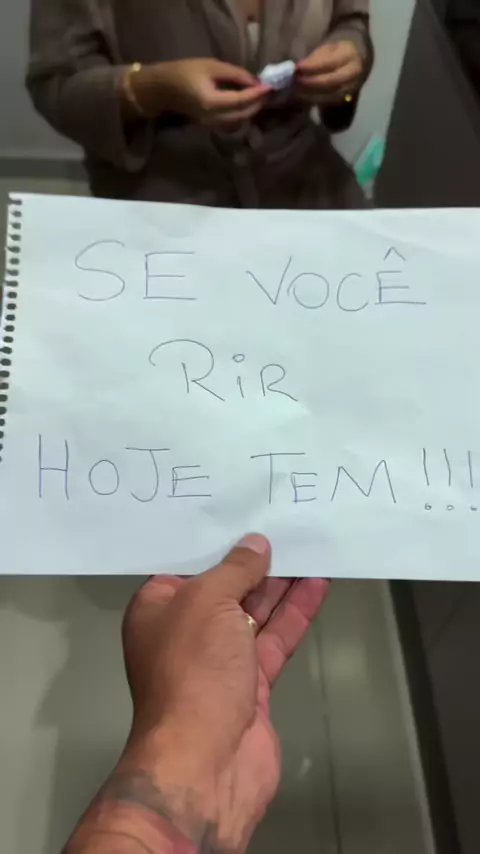 SE VOCÊ
RiR
HOJE TEM!!!